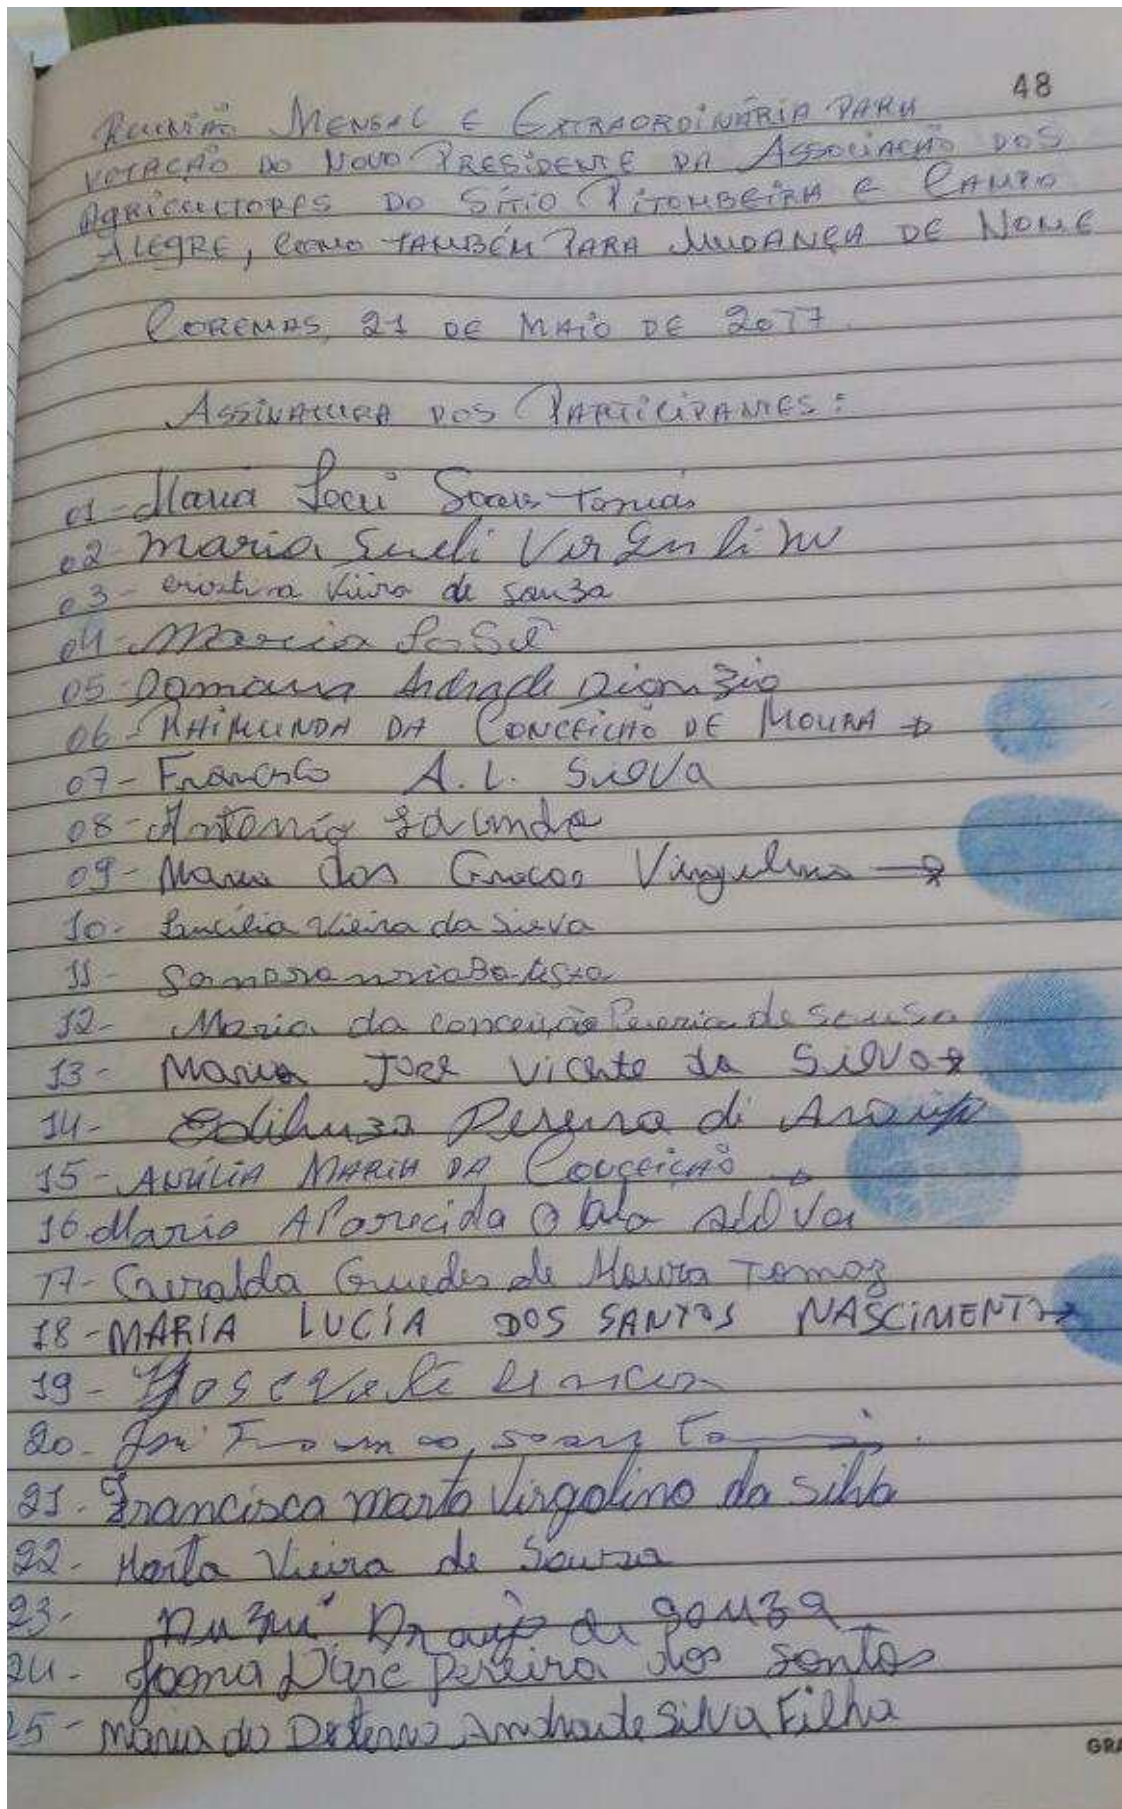 48
Reunião Mensal e Extraordinária para
votação do novo Presidente da Associação dos
Agricultores do Sítio Pitombeira e Campo
Alegre, como também para mudança de nome
Coremas, 21 de maio de 2017.
Assinatura dos Participantes:
01- Maria Soares Tomás
02- maria Sueli Virgulino
03- Vieira de souza
04-
05- Damiana Andrade Dionizio
06- RAIMUNDA DA CONCEIÇÃO DE MOURA
07- Francisco A. L. Silva
08- Antonio
09- Maria das Graças Virgulino
10- Lucilia Vieira da Silva
11-
12- Maria da conceição Pereira de Sousa
13- Maria José Vicente da Silva
14- Edileuza Pereira di Araujo
15- MARIA DA CONCEIÇÃO
16 Maria Aparecida Silva
17- Geralda Guedes de Moura Tomaz
18- MARIA LUCÍA DOS SANTOS NASCIMENTO
19-
20- José Soares
21- Francisca marta Virgolino da Silva
22- Marta Vieira de Sousa
23- Araujo de Souza
24- Joana Darc Pereira dos Santos
25- Maria do Desterro Andrade Silva Filha
GRA